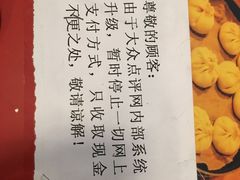 尊敬的顾客：
由于大众点评网内部系统
升级，暂时停止一切网上
支付方式，只收取现金
不便之处，敬请谅解！